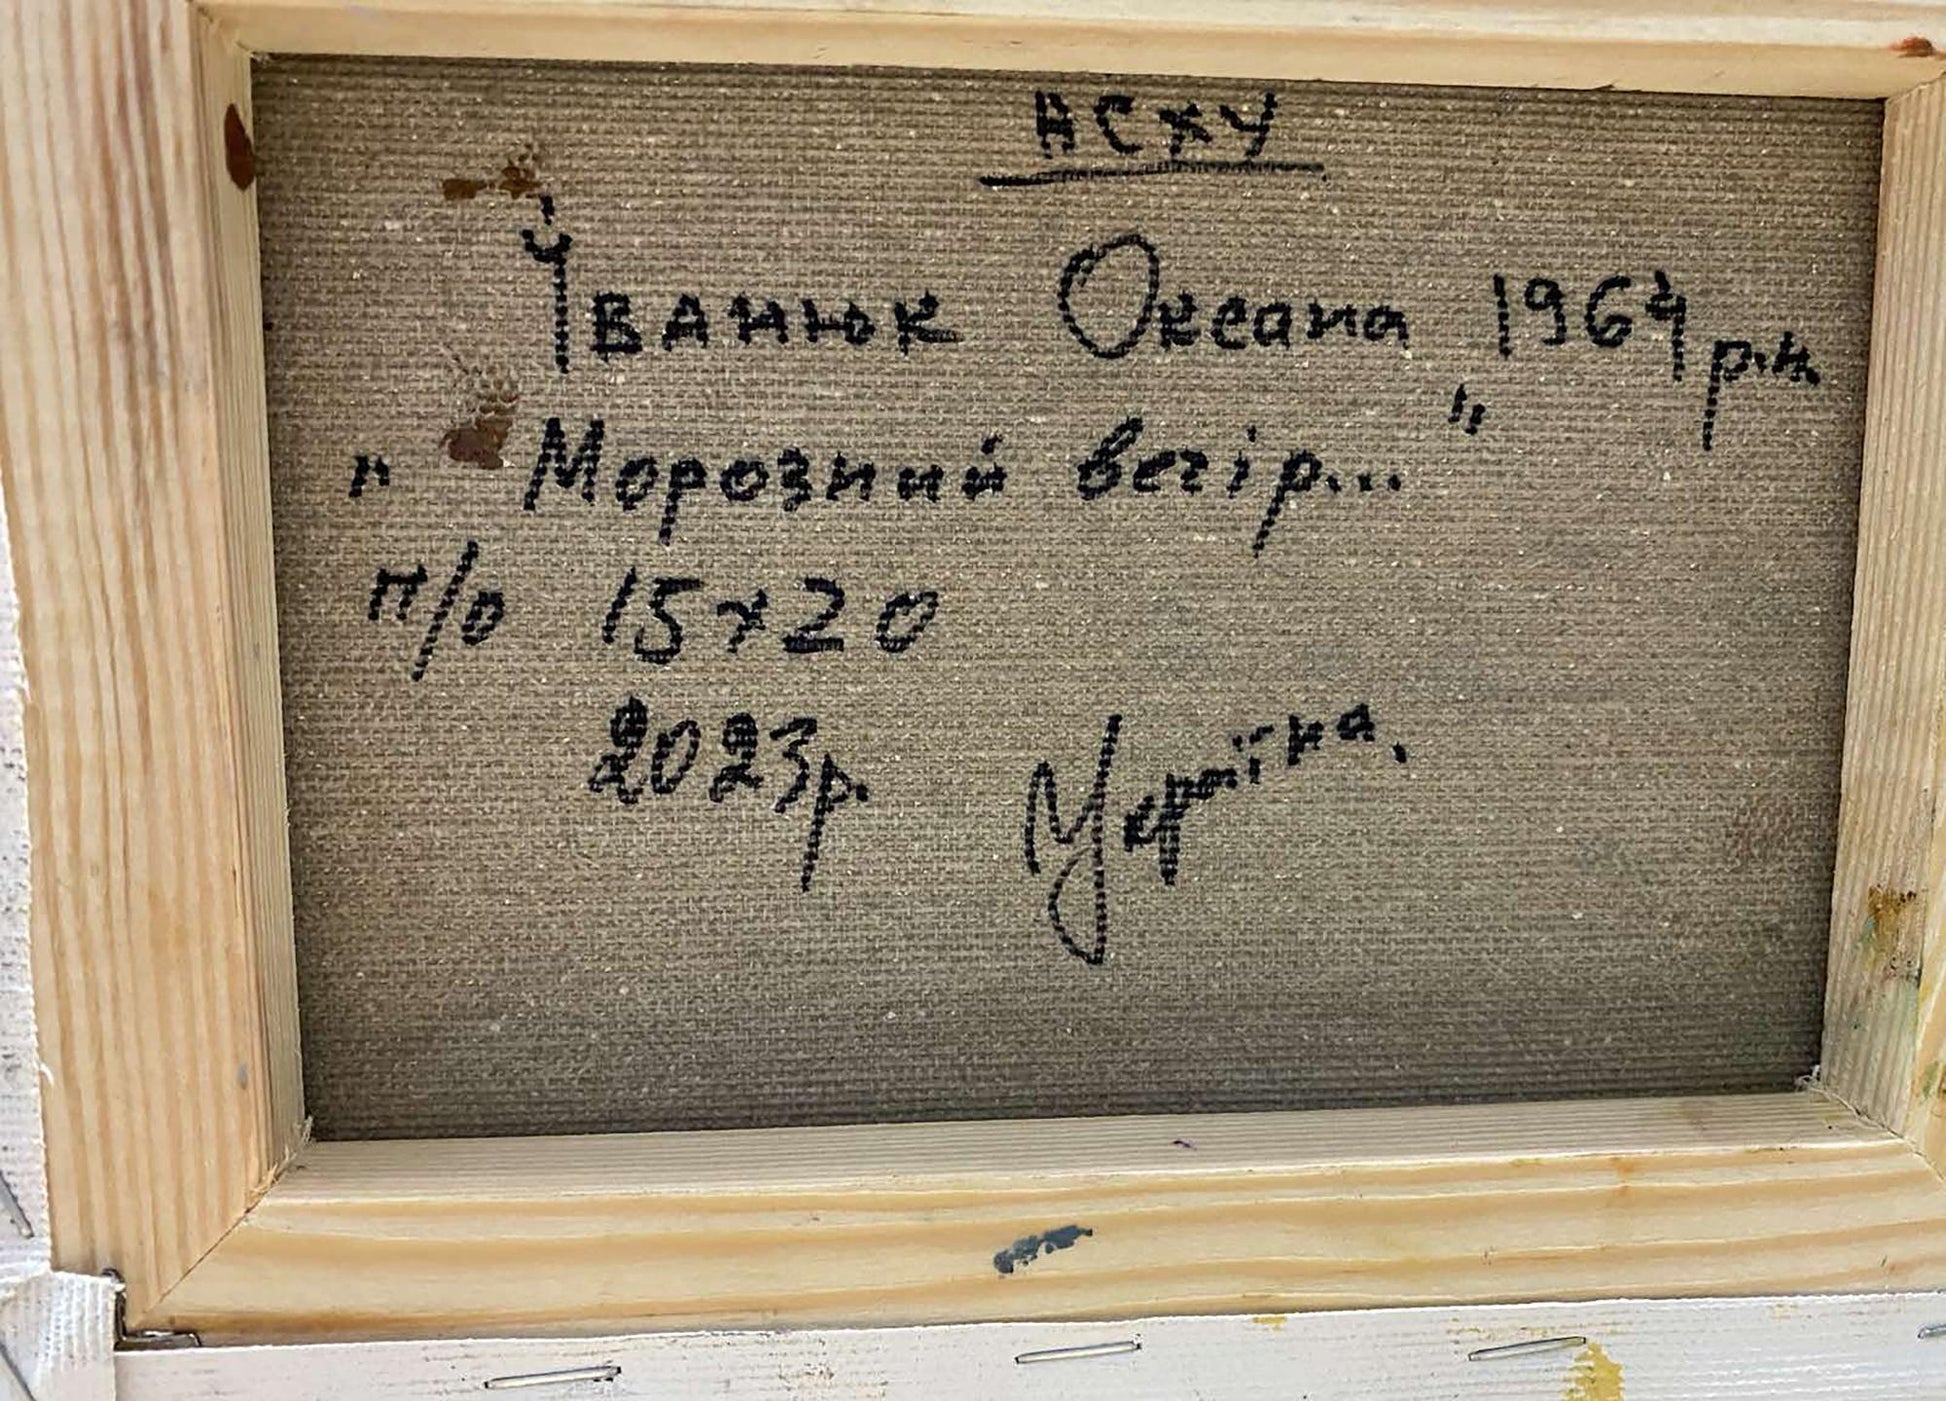 НСХУ
Іванюк Оксана 1964 р.н.
" Морозний вечір... "
п/о 15х20
2023р. Україна.